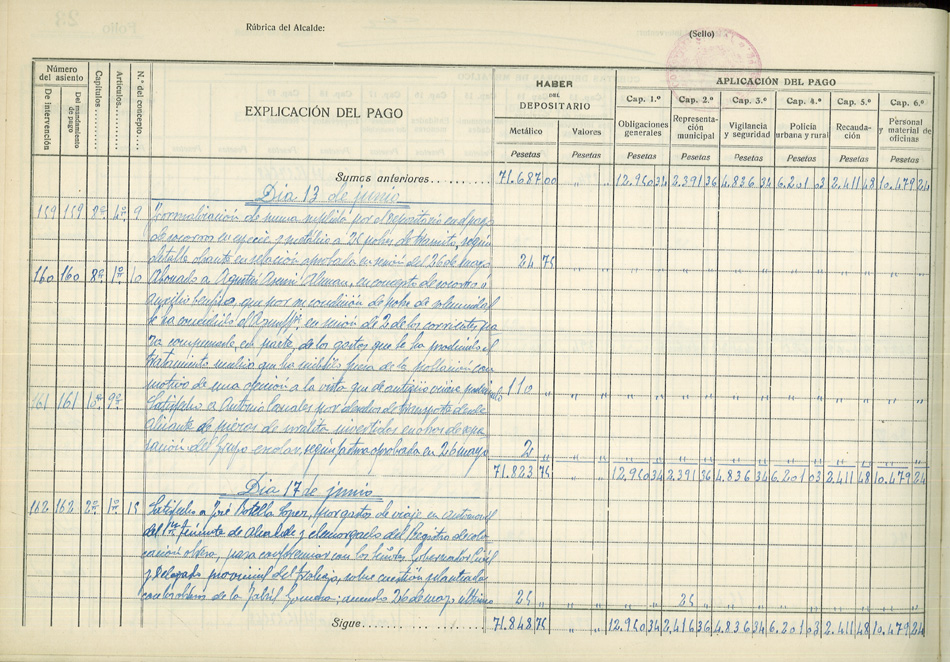 Rúbrica del Alcalde:
(Sello)
Número del asiento
De intervención
Del mandamiento de pago
Capítulos
Artículos
N.º del concepto
EXPLICACIÓN DEL PAGO
HABER DEL DEPOSITARIO
Metálico
Valores
Pesetas
Pesetas
APLICACIÓN DEL PAGO
Cap. 1.º
Cap. 2.º
Cap. 3.º
Cap. 4.º
Cap. 5.º
Cap. 6.º
Obligaciones generales
Representación municipal
Vigilancia y seguridad
Policía urbana y rural
Recaudación
Personal y material de oficinas
Pesetas
Pesetas
Pesetas
Pesetas
Pesetas
Pesetas
Sumas anteriores 71.687 00 " " 12.950 34 2.391 36 4.836 34 6.201 03 2.411 48 10.479 24
Día 13 de junio
159 159 8º 4º 9 Formalización de suma suplida por el Depositario en el pago
de socorros en especie y metálico a 26 pobres de transito, según
detalle obrante en relación aprobada en sesión del 26 de mayo 24 75
160 160 8º 1º 10 Abonado a Agustín Asensi Aleman, en concepto de socorro o
auxilio benéfico, que por su condición de pobre de solemnidad
le ha concedido el Ayunttº, en sesión de 2 de los corrientes, pa
ra compensarle, en parte, de los gastos que le ha producido el
tratamiento médico que ha recibido fuera de la población con
motivo de una afección a la vista que de antiguo viene padeciendo 110
161 161 9º Satisfecho a Antonio Canales por derechos de transporte desde
Alicante de piezas de uralita invertidas en obras de repa
ración del Grupo escolar, según factura aprobada en 26 mayo 2
71.823 75 12.950 34 2.391 36 4.836 34 6.201 03 2.411 48 10.479 24
Día 17 de junio
162 162 2º 1º 15 Satisfecho a José Botella Lopez, por gastos de viaje en automovil
del 1er teniente de Alcalde y el encargado del Registro de colo
cación obrera, para conferenciar con los señores Gobernador Civil
y Delegado provincial del Trabajo, sobre cuestión planteada
con los obreros de la Fabril ; acuerdo 26 de mayo último 25 25
Sigue 71.848 75 " " 12.950 34 2.416 36 4.836 34 6.201 03 2.411 48 10.479 24